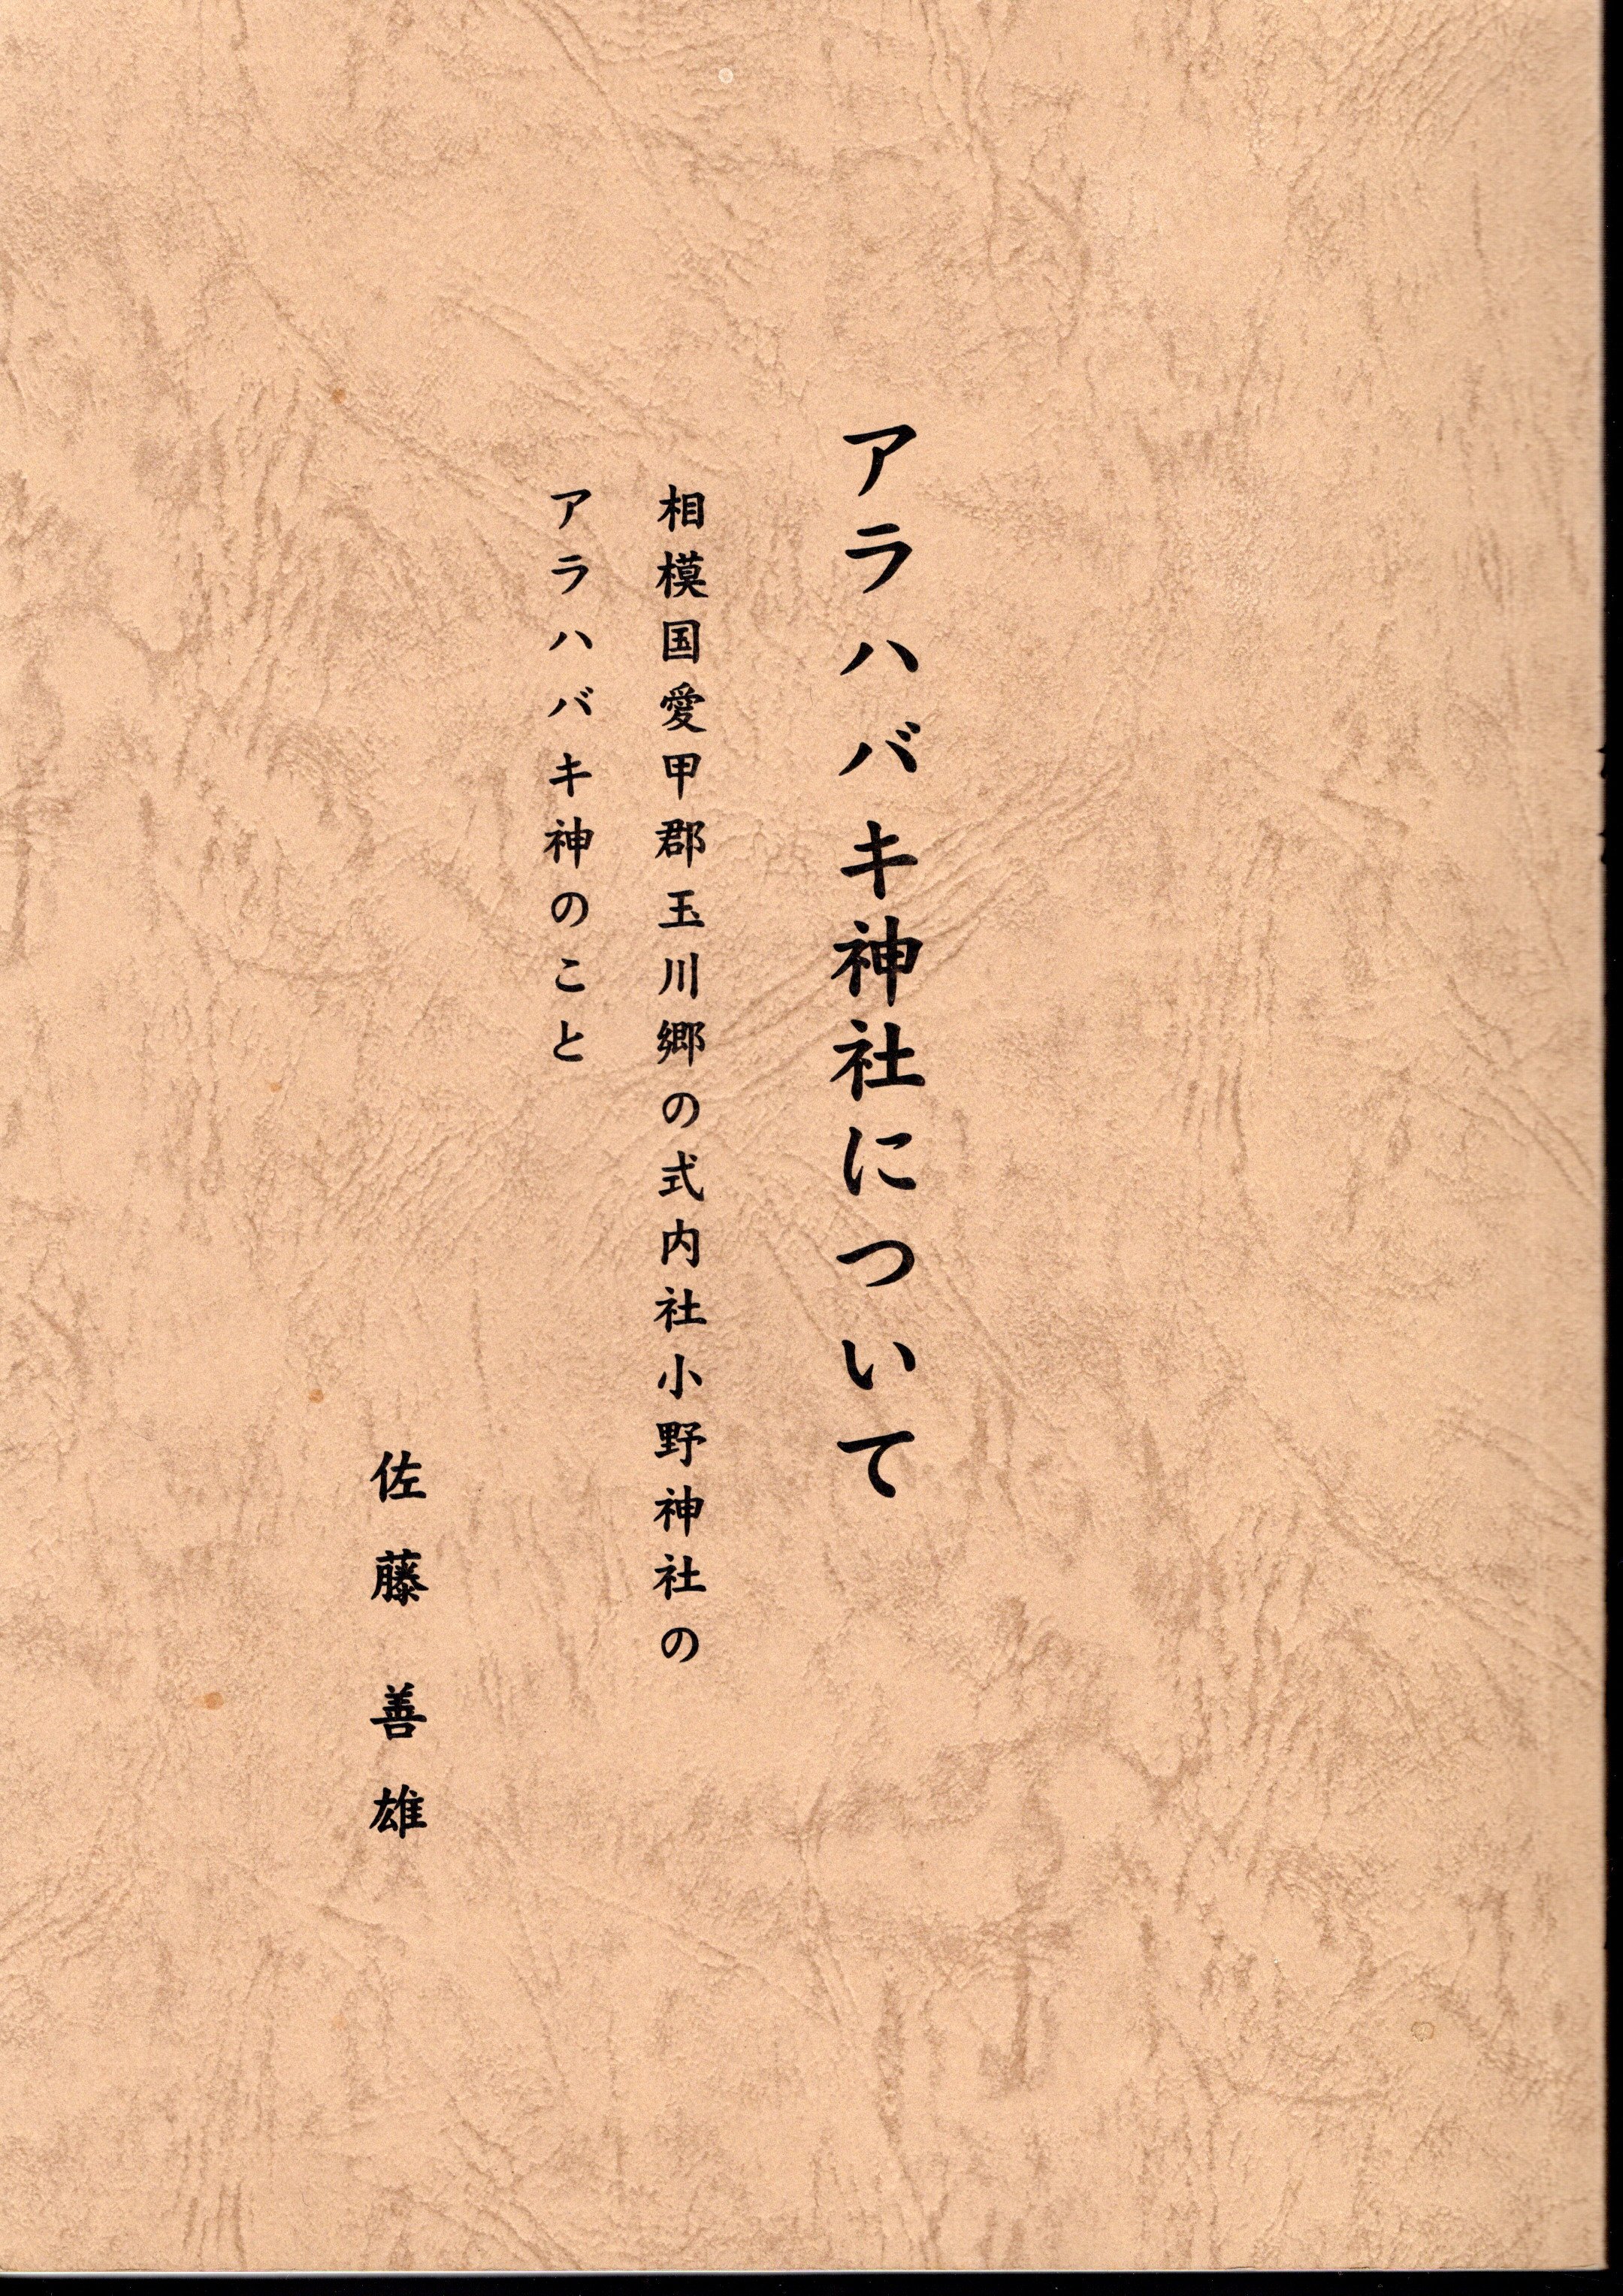 アラハバキ神社について
相模国愛甲郡玉川郷の式内社小野神社の
アラハバキ神のこと
佐藤善雄